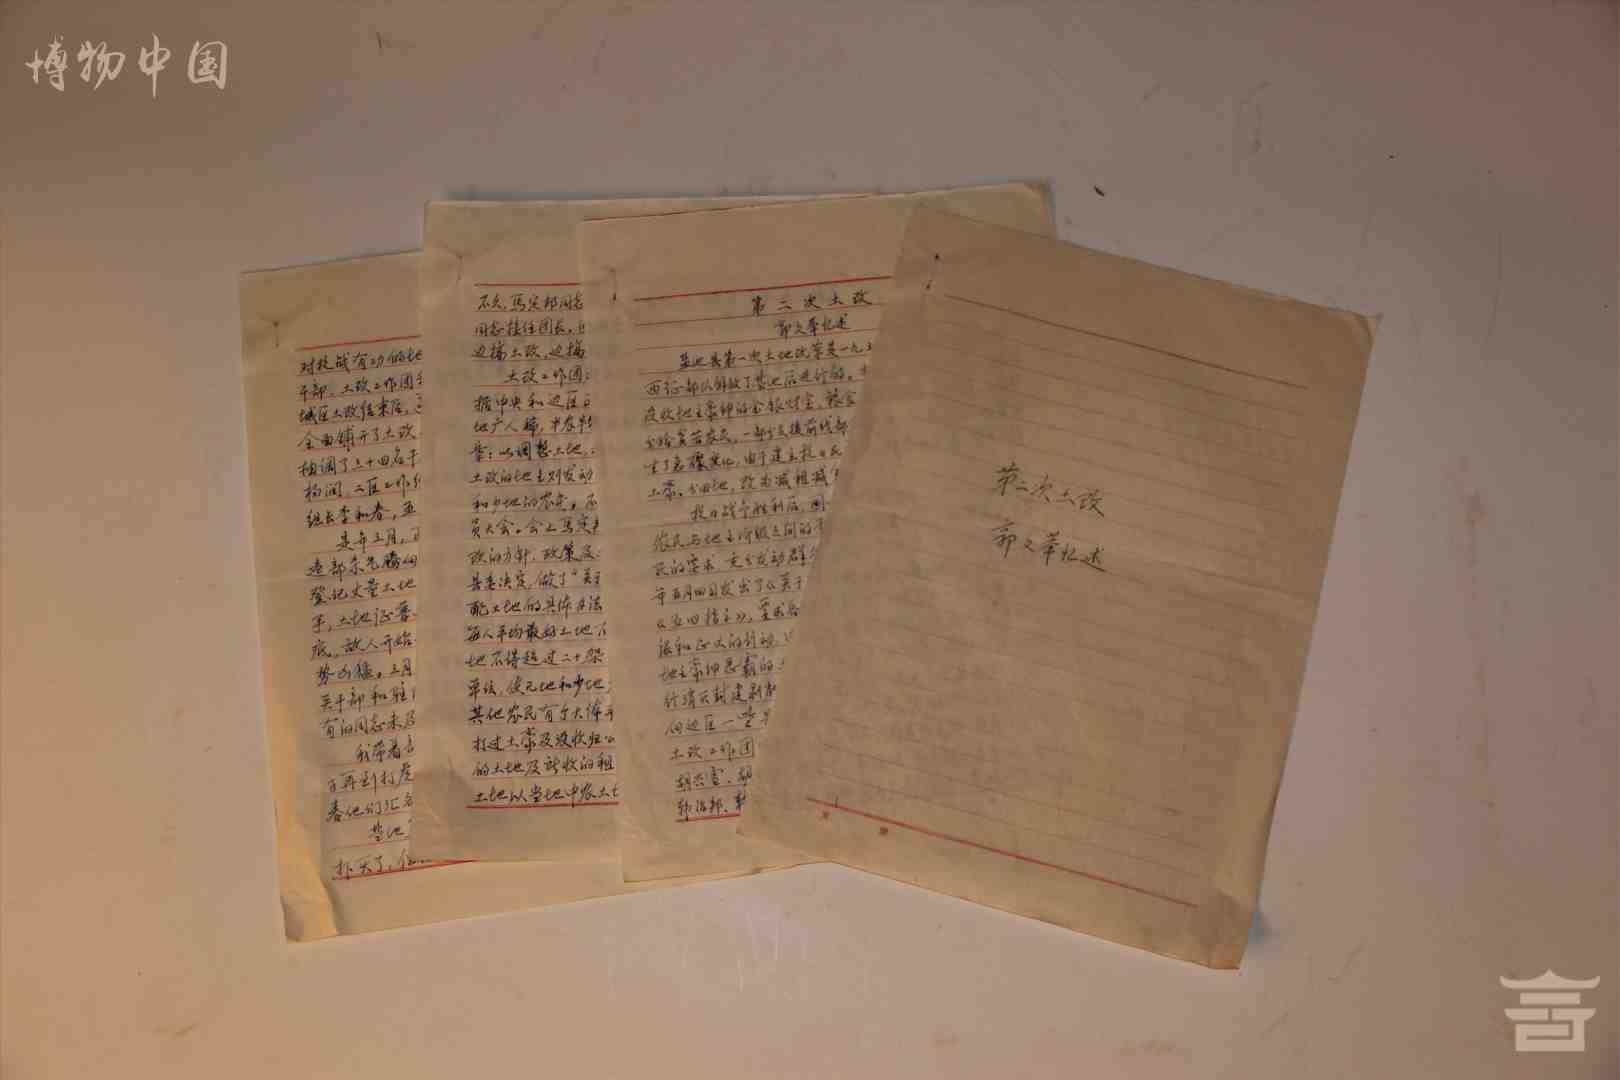 博物中国
第二次土改
郭文举忆述
第二次土改
郭文举忆述
盐池县第一次土地改革是一九三
西征部队解放了盐池后进行的。
没收地主豪绅的金银财宝、粮食
分给贫苦农民,一部分支援前线部
生了急骤变化,由于建立抗日民
土豪、分田地,改为减租减
抗日战争胜利后,国
农民与地主阶级之间的
民的要求,充分发动群众
年五月四日发出了《关于
《五四指示》,要求各
法和正大的行动,
地主豪绅恶霸的
行消灭封建剥削
向边区一些
土改工作团
胡兴宝、胡
韩治邦、
不久,马定邦同志
同志接任团长,
边搞土改,边搞
土改工作团
据中央和边区
地广人稀,中农
是:以调整土地,
土改的地主则发动
和少地的农民,
员大会。会上马定
改的方针、政策及
县委决定,做了“关于
配土地的具体办法
每人平均最好土地
地不得超过二十
单位,使无地和少地
其他农民有个大体
打过土豪及没收归公
的土地及所收的租
土地以当地中农土地
对抗战有功的地
干部,土改工作团
城区土改结束后,
全面铺开了土改。
抽调了三十四名干
杨润,二区工作
组长李和春,
是年三月,
远部
登记丈量土地
手,土地证
底,敌人开始
势凶猛。三月
关干部和驻
有的同志未
我带着
百再到打
春他们汇
盐地
扑灭了,